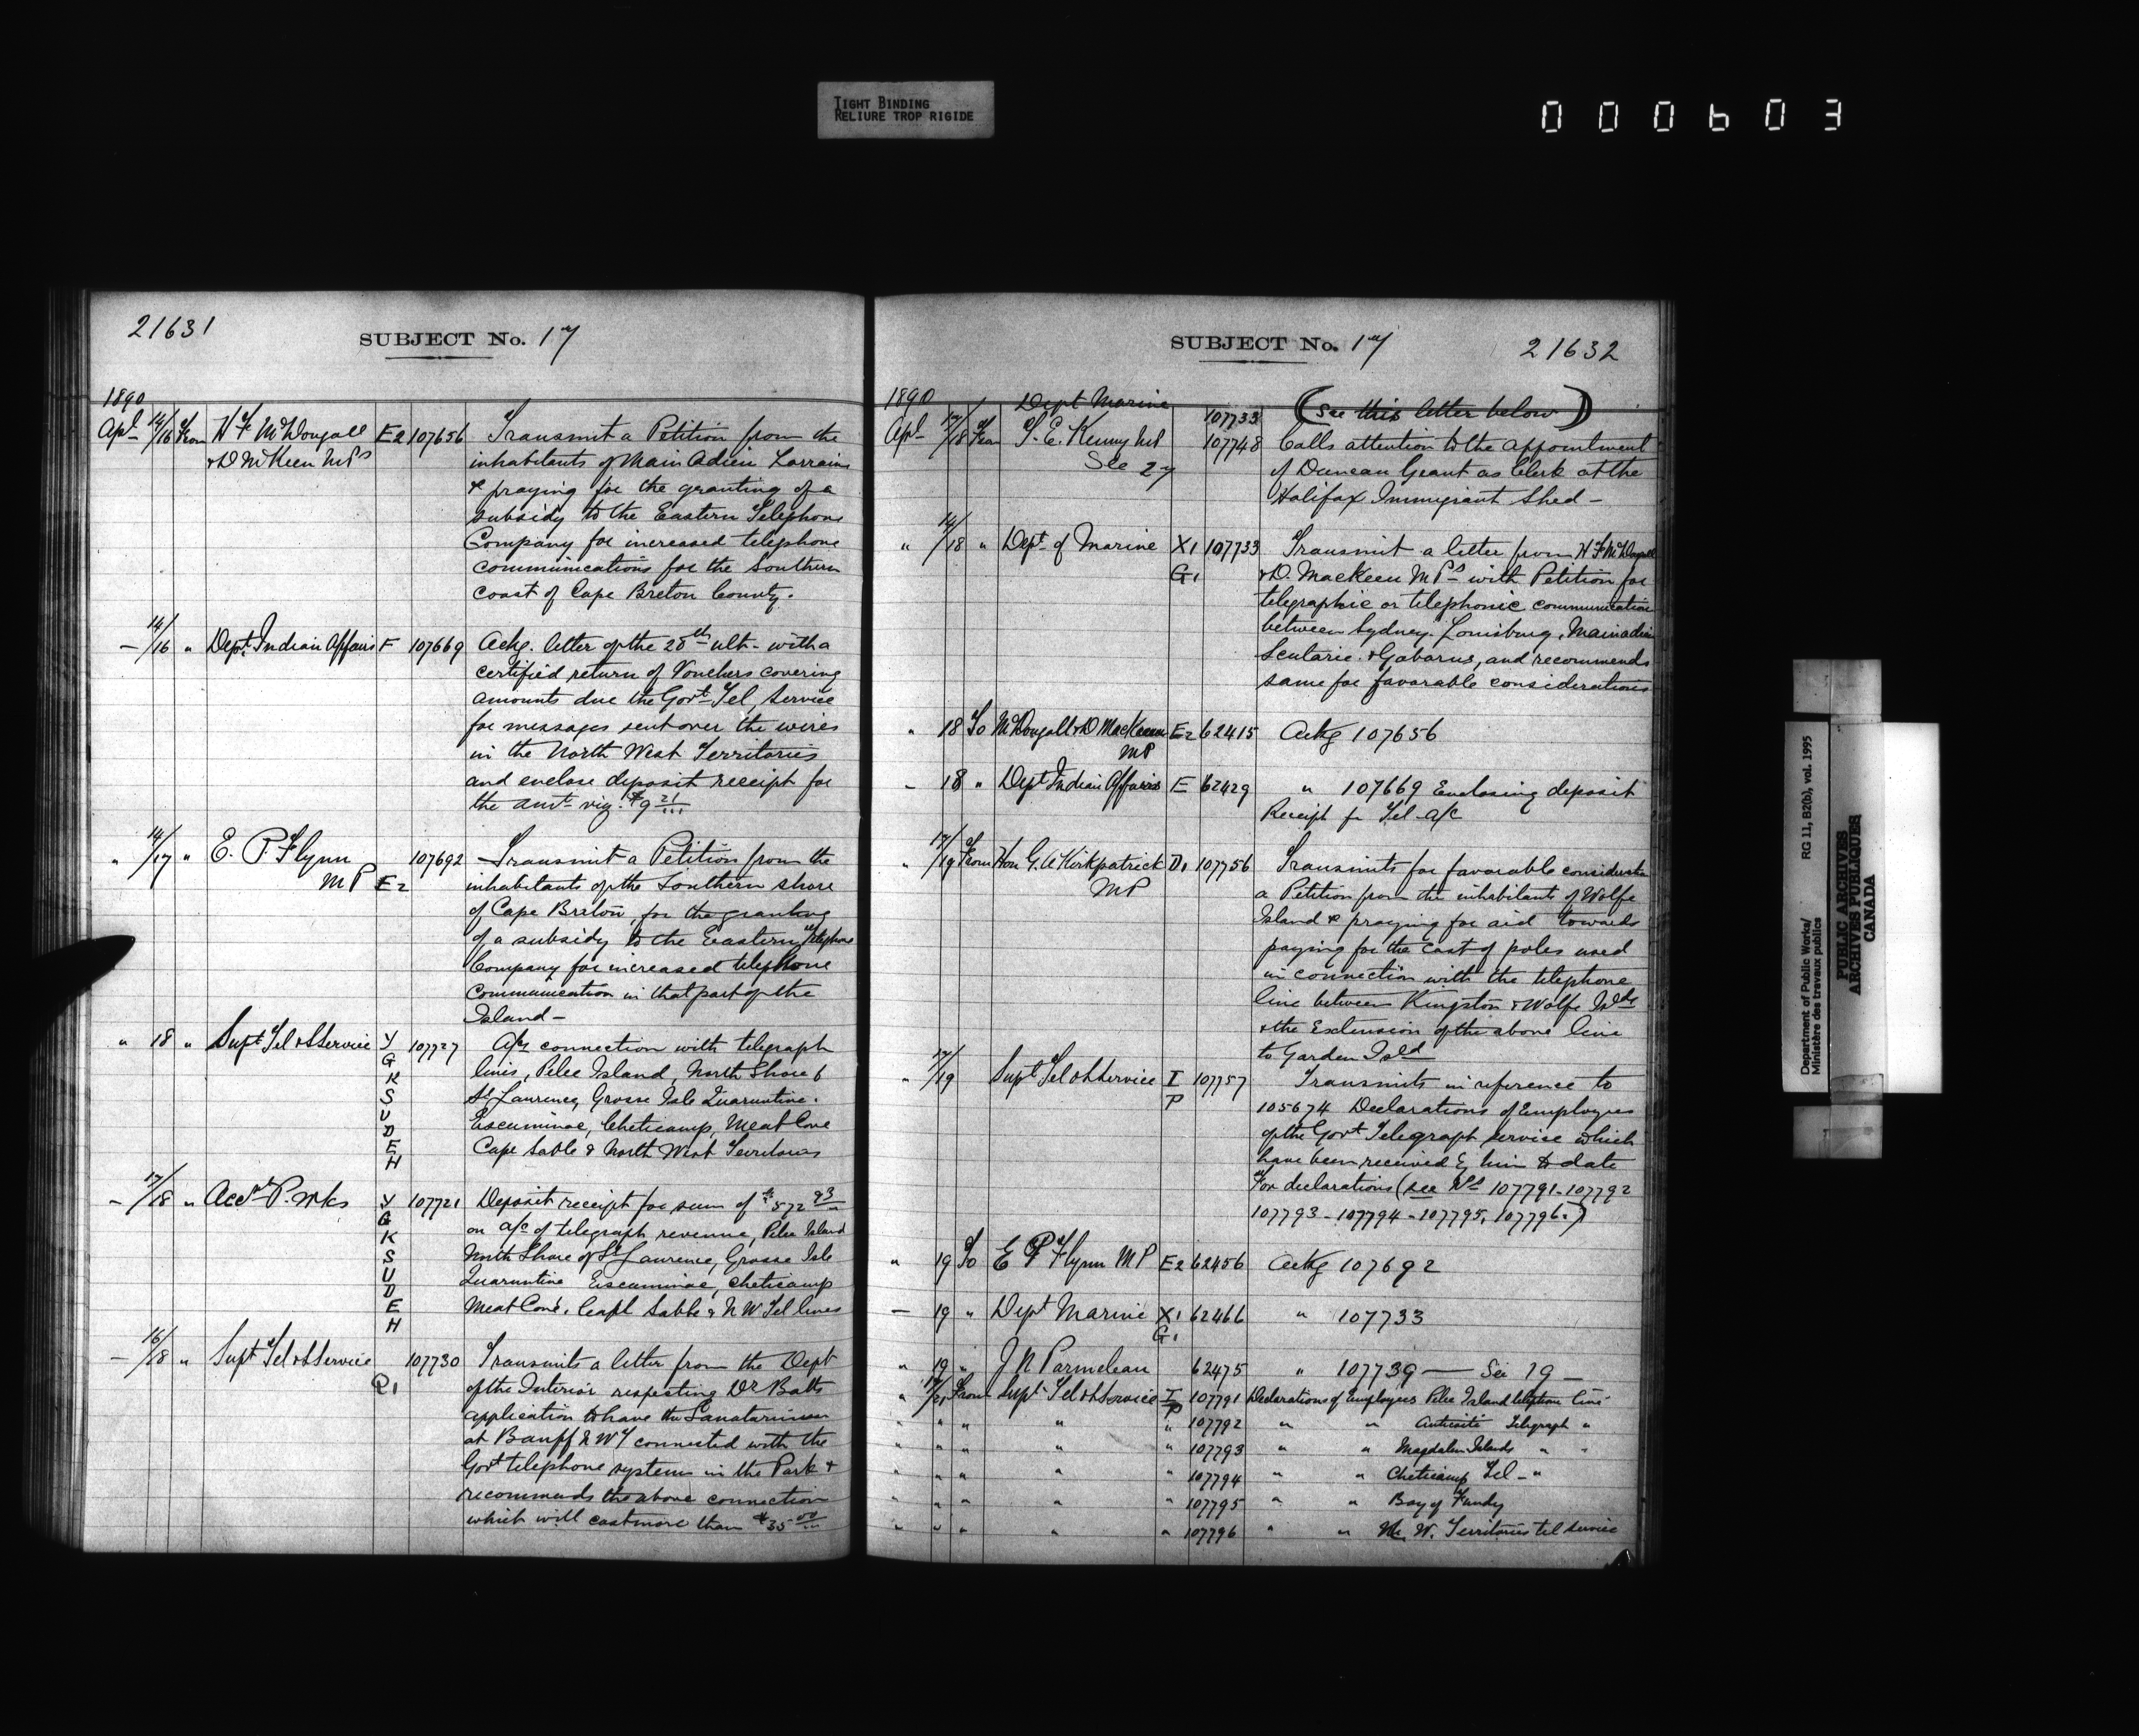 TIGHT BINDING
RELIURE TROP RIGIDE
000603
21631
SUBJECT No. 17
1890
Apl 14/16 From H F McDougall E2 107656 Transmit a Petition from the
& D McKeen MPs inhabitants of Main Adieu Lorraine
& praying for the granting of a
subsidy to the Eastern Telephone
Company for increased telephone
communications for the Southern
coast of Cape Breton County.
— 14/16 " Dept. Indian Affairs F 107669 Ackg. letter of the 28th ult. with a
certified return of Vouchers covering
amounts due the Govt Tel, Service
for messages sent over the wires
in the North West Territories
and enclose deposit receipt for
the amt viz: $9 21
" 14/17 " E. P. Flynn 107692 Transmit a Petition from the
MP E2 inhabitants of the Southern shore
of Cape Breton, for the granting
of a subsidy to the Eastern Telephone
Company for increased telephone
communication in that part of the
Island —
" 18 " Supt Tel & S Service Y 107727 A/cs connection with telegraph
G
K lines, Pelee Island, North Shore
S St Laurence, Grosse Isle Quarantine.
U
D Escuminac, Cheticamp, Meat Cove
E Cape Sable & North West Territories
H
— 17/18 " Acct P. Wks Y 107721 Deposit receipt for sum of $572 93
G
K on a/c of telegraph revenue, Pelee Island
S North Shore of St Laurence, Grosse Isle
U
D Quarantine Escuminac, Cheticamp
E Meat Cove, Cape Sable & N W Tel lines
H
— 16/18 " Supt Tel & S Service 107730 Transmits a letter from the Dept
Q1 of the Interior respecting Dr Batts
application to have the Sanatarium
at Banff N W T connected with the
Govt telephone systems in the Park &
recommends the above connection
which will cost more than $35 00
SUBJECT No. 17
21632
1890 Dept Marine 107733 (See this letter below)
Apl 17/18 From T. E. Kenny MP 107748 Calls attention to the appointment
See 27 of Duncan Grant as Clerk at the
Halifax Immigrant Shed —
" 14/18 " Dept. of Marine X1 107733 Transmit a letter from H F McDougall
G1 & D. MacKeen MPs with Petition for
telegraphic or telephonic communication
between Sydney. Louisburg, Mainadieu
Scutarie. & Gabarus, and recommends
same for favorable considerations
" 18 To McDougall & D MacKeen E2 62415 Ackg 107656
MP
— 18 " Dept Indian Affairs E 62429 " 107669 Enclosing deposit
Receipt for Tel a/c
" 17/19 From Hon G. A Kirkpatrick D1 107756 Transmits for favorable consideration
MP a Petition from the inhabitants of Wolfe
Island & praying for aid towards
paying for the cost of poles used
in connection with the telephone
line between Kingston & Wolfe Islds
& the Extension of the above line
to Garden Isld
" 17/19 Supt Tel & S Service I 107757 Transmits in reference to
P 105674 Declarations of Employees
of the Govt Telegraph service which
have been received by him to date
For declarations (see Nos 107791-107792
107793-107794-107795, 107796.)
" 19 To E P Flynn MP E2 62456 Ackg 107692
— 19 " Dept Marine X1 62466 " 107733
G1
" 19 " J N Parmelean 62475 " 107739 — See 19 —
" 17/21 From Supt Tel & S Service I 107791 Declarations of Employees Pelee Island telephone line
P
" " " " " 107792 " " Anticosti Telegraph "
" " " " " 107793 " " Magdalen Islands " "
" " " " " 107794 " " Cheticamp Tel "
" " " " " 107795 " " Bay of Fundy
" " " " " 107796 " " N. W. Territories tel service
Department of Public Works/ RG 11, B2(b), vol. 1995
Ministère des travaux publics
PUBLIC ARCHIVES
ARCHIVES PUBLIQUES
CANADA